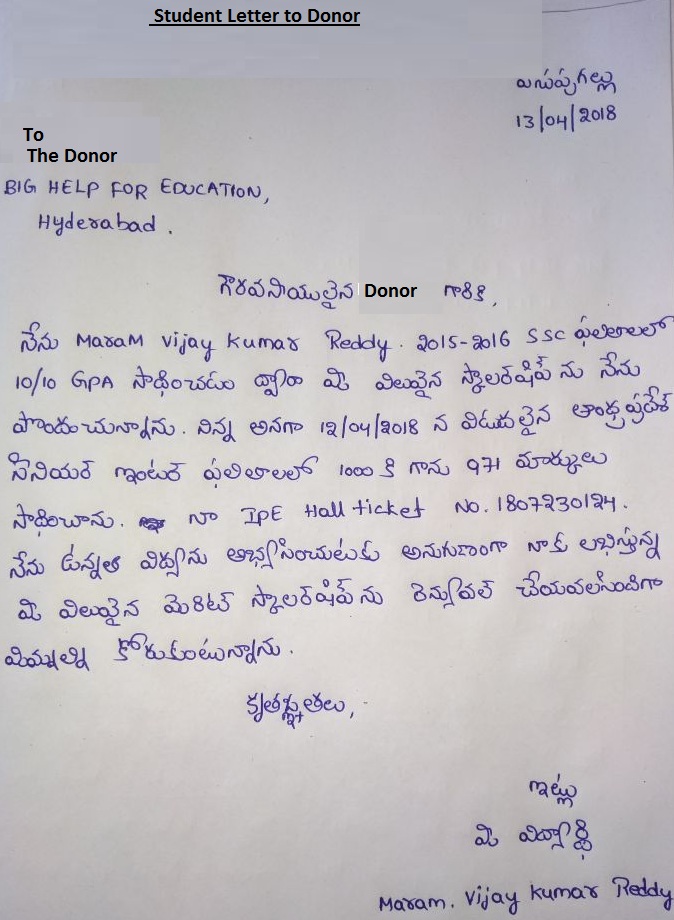 Student Letter to Donor
ఐడుపుగల్లు
13/04/2018
To
The Donor
BIG HELP FOR EDUCATION,
Hyderabad.
గౌరవనీయులైన Donor గారికి,
నేను Maram Vijay Kumar Reddy. 2015-2016 SSC ఫలితాలలో
10/10 GPA సాధించడం ద్వారా మీ విలువైన స్కాలర్‌షిప్ ను నేను
పొందుచున్నాను. నిన్న అనగా 12/04/2018 న విడుదలైన ఆంధ్రప్రదేశ్
సీనియర్ ఇంటర్ ఫలితాలలో 1000 కి గాను 971 మార్కులు
సాధించాను. నా IPE Hall ticket No. 1807230124.
నేను ఉన్నత విద్యను అభ్యసించుటకు అనుగుణంగా నాకు లభిస్తున్న
మీ విలువైన మెరిట్ స్కాలర్‌షిప్ ను రెన్యువల్ చేయవలసిందిగా
మిమ్మల్ని కోరుకుంటున్నాను.
కృతజ్ఞతలు,
ఇట్లు
మీ విద్యార్థి
Maram. Vijay Kumar Reddy